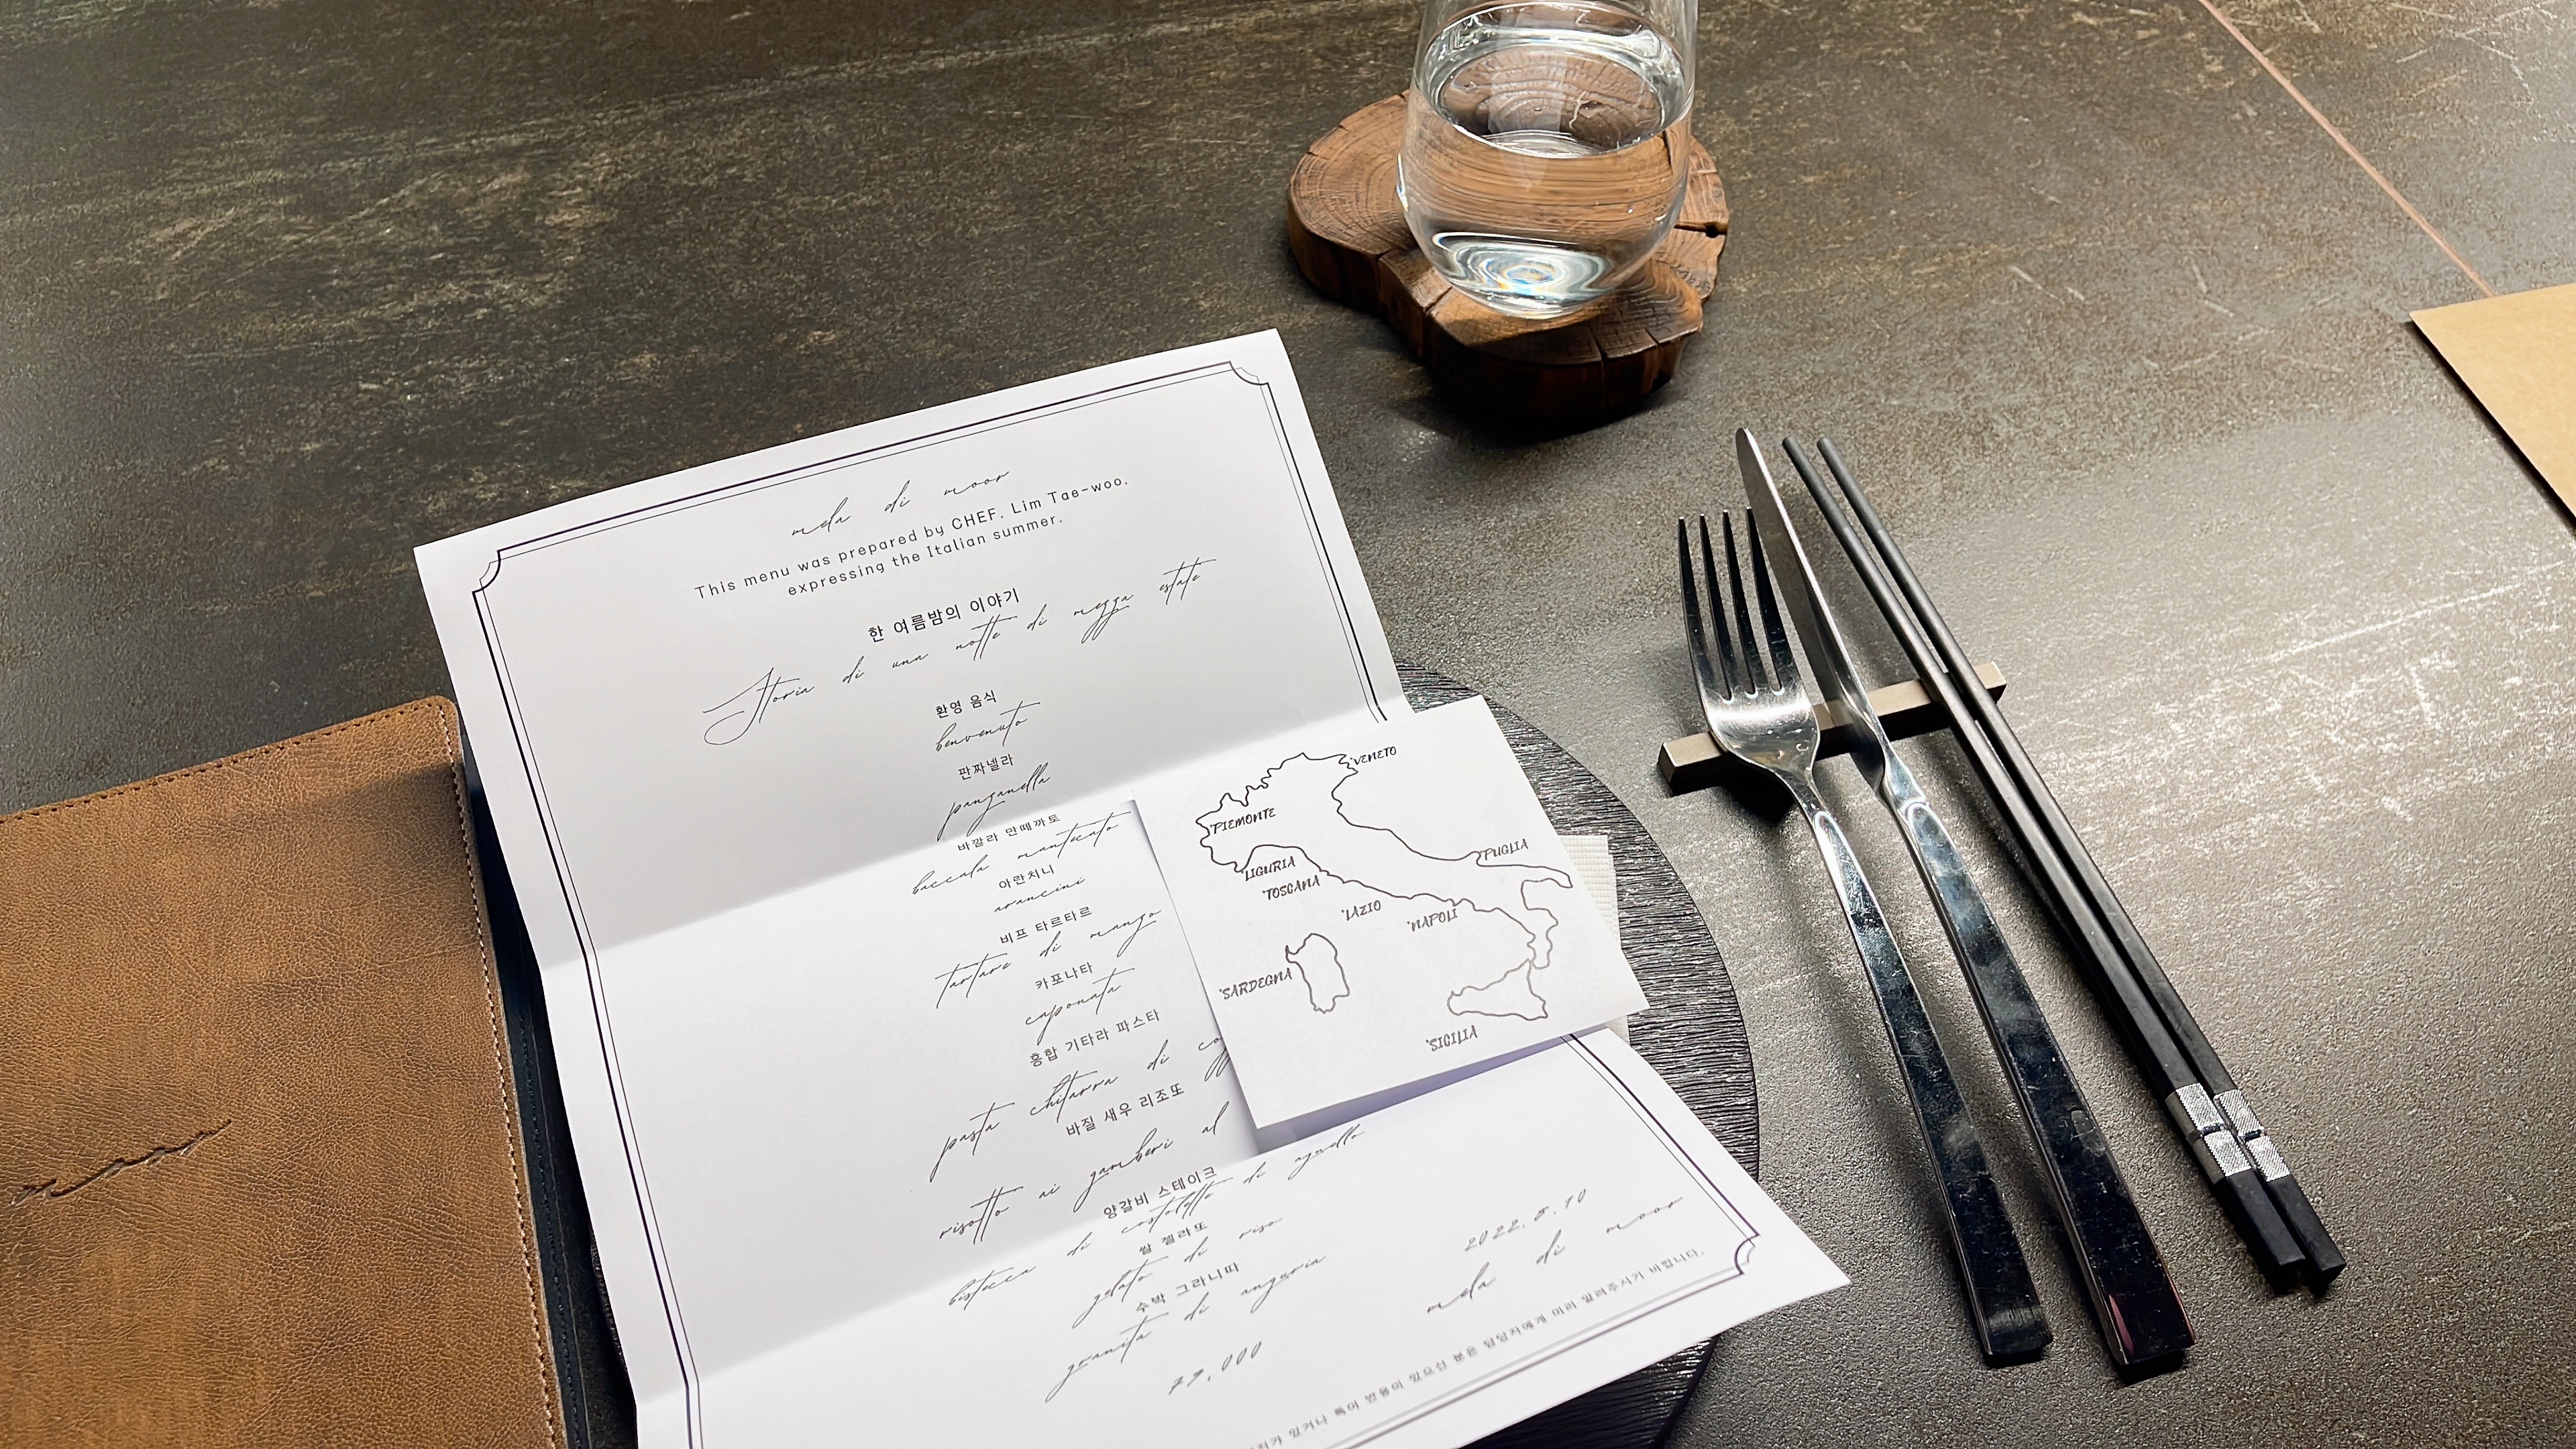 mela di moor
This menu was prepared by CHEF. Lim Tae-woo,
expressing the Italian summer.
한 여름밤의 이야기
Storia di una notte di mezza estate
환영 음식
benvenuto
판짜넬라
panzanella
바깔라 만떼까토
baccala mantecato
아란치니
arancini
비프 타르타르
tartare di manzo
카포나타
caponata
홍합 기타라 파스타
pasta chitarra di
바질 새우 리조또
risotto ai gamberi al
양갈비 스테이크
bistecca di costoletta di agnello
쌀 젤라또
gelato di riso
수박 그라니따
granita di anguria
79,000
2022. 8. 10
mela di moor
있거나 특이 반응이 있으신 분은 담당자에게 미리 알려주시기 바랍니다.
VENETO
PIEMONTE
LIGURIA
TOSCANA
PUGLIA
LAZIO
NAPOLI
SARDEGNA
SICILIA
moor